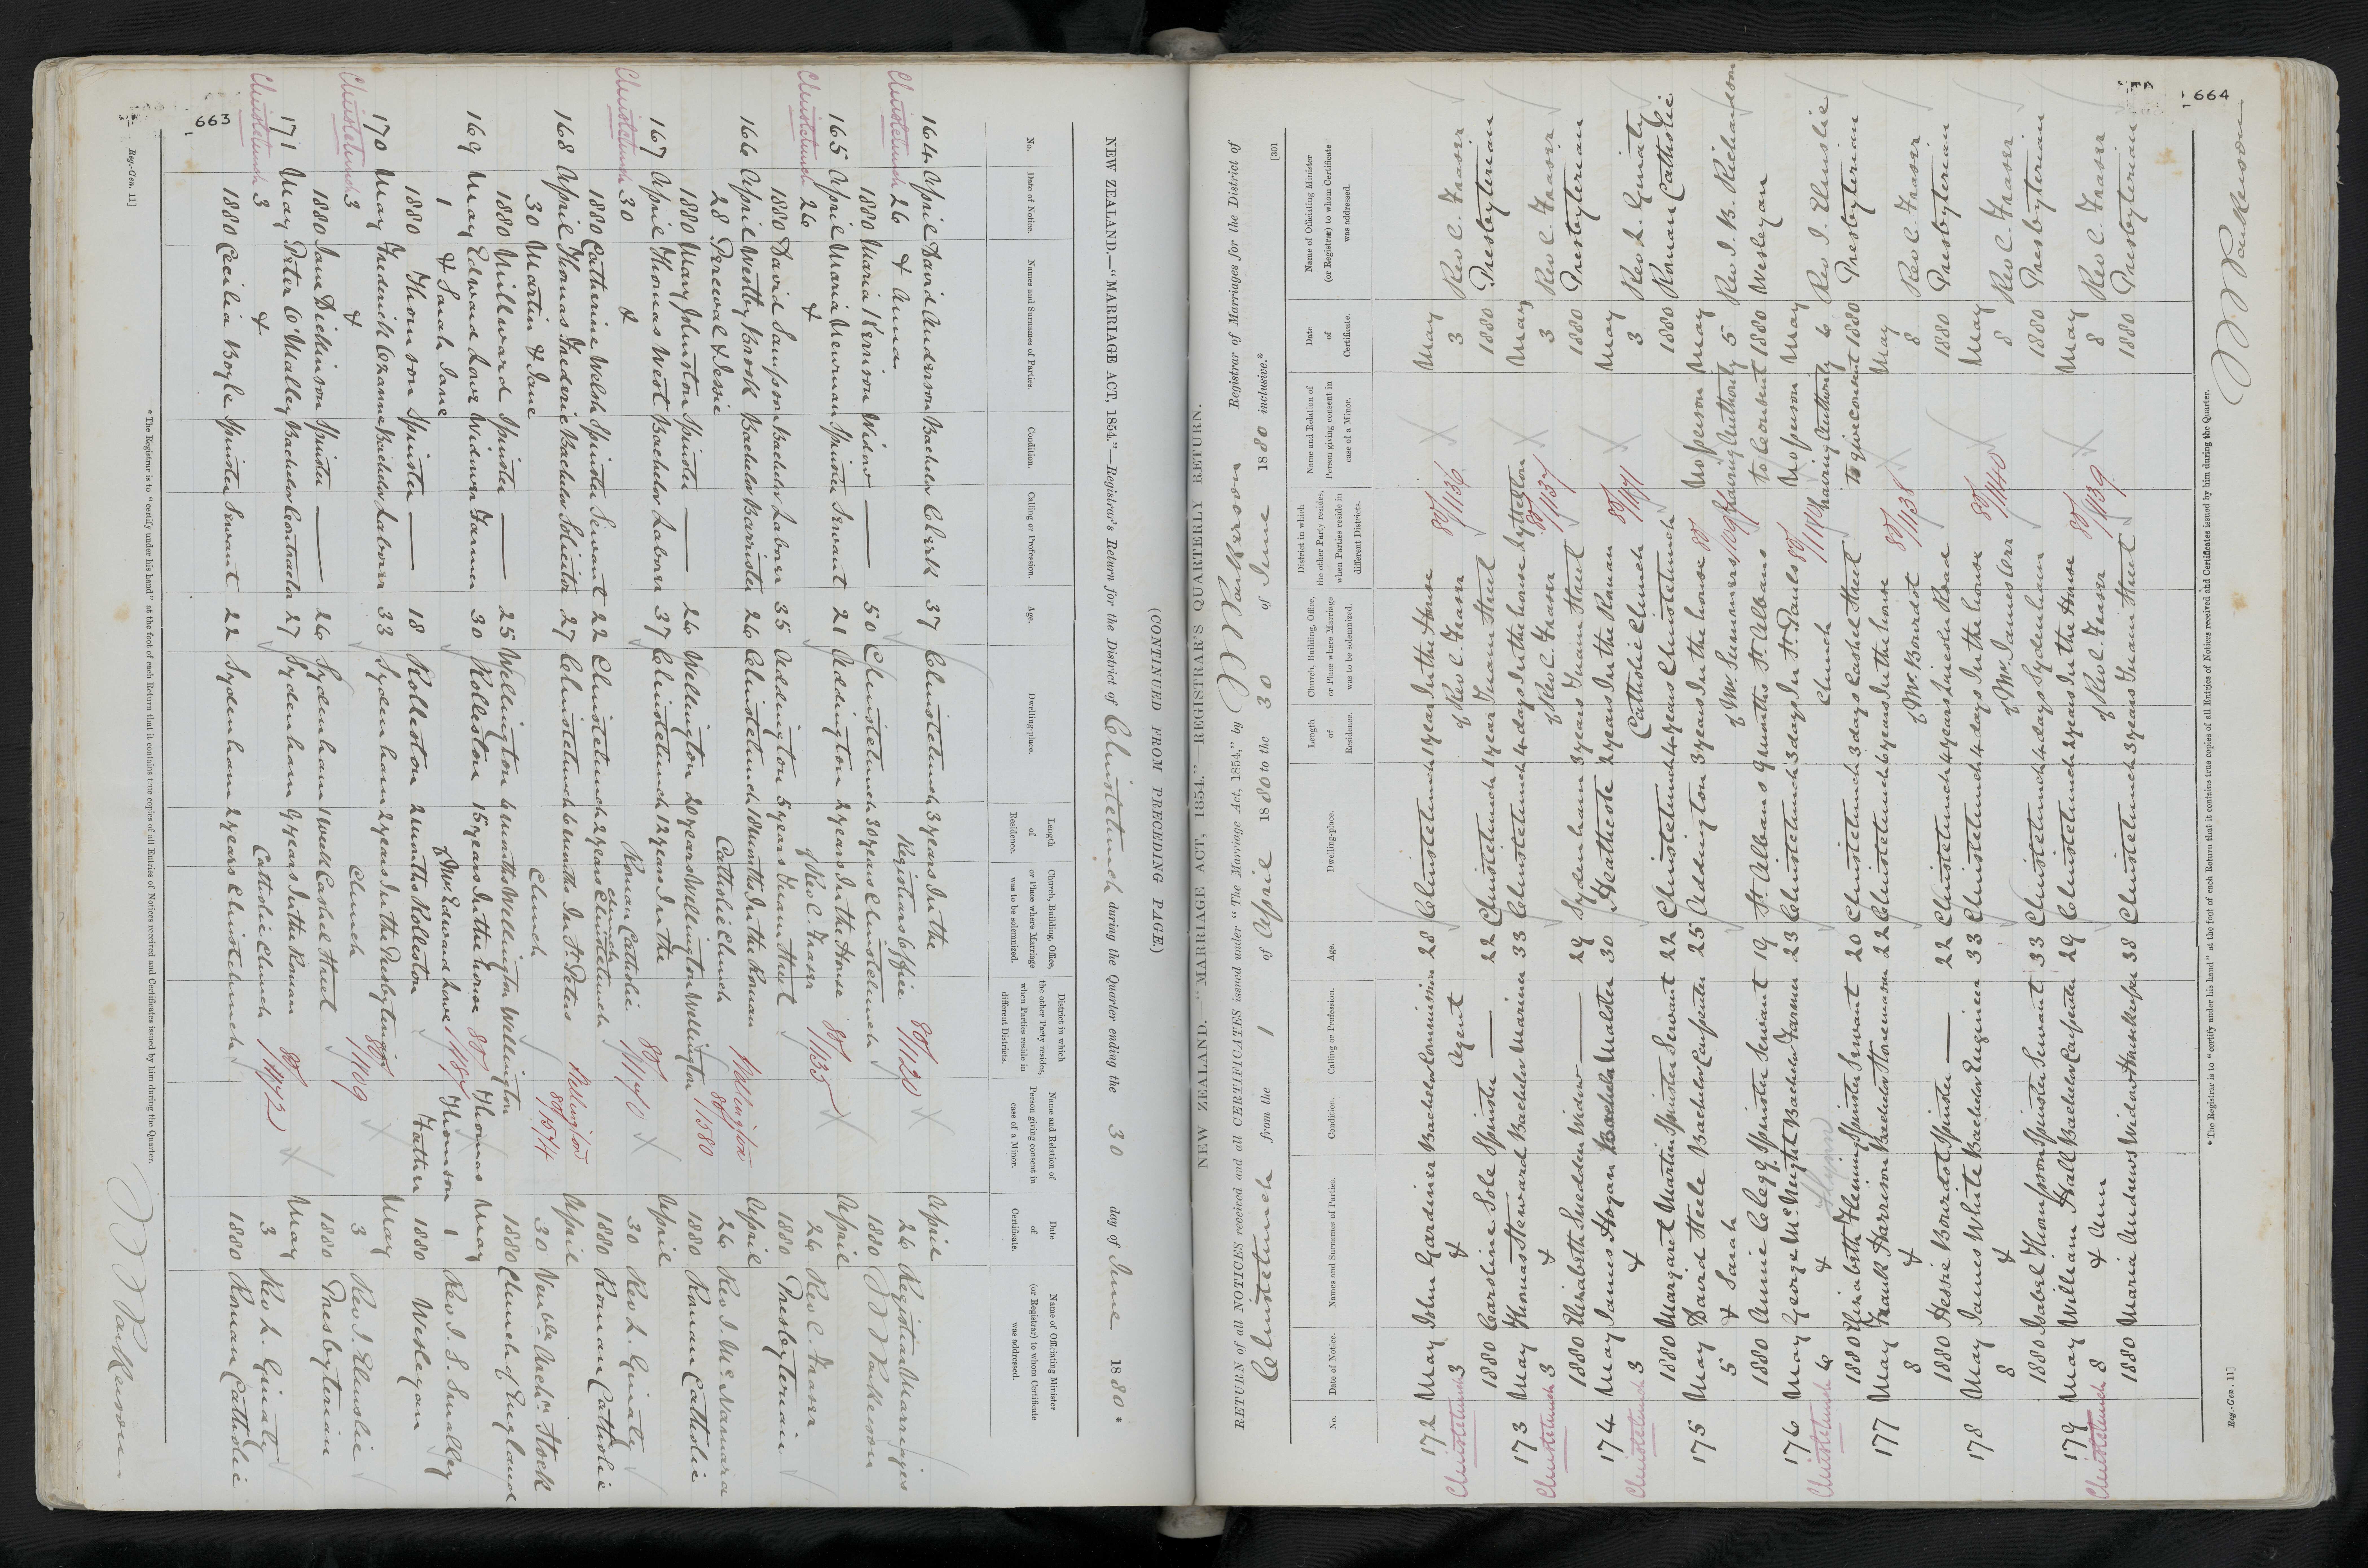 NEW ZEALAND.—"MARRIAGE ACT, 1854."—Registrar's Return for the District of Christchurch during the Quarter ending the 30 day of June 1880.
(CONTINUED FROM PRECEDING PAGE.)
No. Date of Notice. Names and Surnames of Parties. Condition. Calling or Profession. Age. Dwelling-place. Length of Residence. Church, Building, Office, or Place where Marriage was to be solemnized. District in which the other Party resides, when Parties reside in different Districts. Name and Relation of Person giving consent in case of a Minor. Date of Certificate. Name of Officiating Minister (or Registrar) to whom Certificate was addressed.
164 April David Anderson Bachelor Clerk 37 Christchurch 3 years In the April
Christchurch 26 & Anna Registrars Office 80/1120 26 Registrar Marriages
1880 Maria Kerrison Widow — 50 Christchurch 30 years Christchurch 1880
165 April Maria Newman Spinster Servant 21 Addington 2 years In the House April
Christchurch 26 & of Rev C. Fraser 80/1135 26 Rev C. Fraser
1880 David Sampson Bachelor Laborer 35 Addington 5 years Tuam Street 1880 Presbyterian
166 April Westby Brook Bachelor Barrister 26 Christchurch 18 months In the Roman Wellington April
28 Perceval & Jessie Catholic Church 80/1580 26 Rev J. McNamara
1880 Mary Johnston Spinster — 26 Wellington 20 years Wellington Wellington 1880 Roman Catholic
167 April Thomas West Bachelor Laborer 37 Christchurch 12 years In the April
Christchurch 30 & Roman Catholic 80/1470 30 Rev L. Ginaty
1880 Catherine Welsh Spinster Servant 22 Christchurch 2 years Church Christchurch 1880 Roman Catholic
168 April Thomas Frederic Bachelor Solicitor 27 Christchurch 6 months In St Peters Wellington April
30 Martin & Jane Church 80/1574 30 Venble Archn Stock
1880 Millward Spinster — 25 Wellington 6 months Wellington Wellington 1880 Church of England
169 May Edward Lowe Widower Farmer 30 Rolleston 15 years In the house 80 Thomas May
1 & Sarah Jane of Mr Edward Lowe Thomson 1 Rev J. S. Smalley
1880 Thomson Spinster — 18 Rolleston 2 months Rolleston Father 1880 Wesleyan
170 May Frederick Bachelor Laborer 33 Sydenham 2 years In the Presbyterian May
Christchurch 3 & Church 80/1109 3 Rev J. Elmslie
1880 Jane Dickinson Spinster — 26 Sydenham 1 week Cashel Street 1880 Presbyterian
171 May Peter O'Malley Bachelor Contractor 27 Sydenham 9 years In the Roman May
Christchurch 3 & Catholic Church 80/1472 3 Rev L. Ginaty
1880 Cecilia Boyle Spinster Servant 22 Sydenham 2 years Christchurch 1880 Roman Catholic
663
* The Registrar is to "certify under his hand" at the foot of each Return that it contains true copies of all Entries of Notices received and Certificates issued by him during the Quarter.
Reg.-Gen. 11]
NEW ZEALAND.—"MARRIAGE ACT, 1854." REGISTRAR'S QUARTERLY RETURN.
[301
RETURN of all NOTICES received and all CERTIFICATES issued under "The Marriage Act, 1854," by Registrar of Marriages for the District of
Christchurch from the 1 of April 1880 to the 30 of June 1880 inclusive.*
No. Date of Notice. Names and Surnames of Parties. Condition. Calling or Profession. Age. Dwelling-place. Length of Residence. Church, Building, Office, or Place where Marriage was to be solemnized. District in which the other Party resides, when Parties reside in different Districts. Name and Relation of Person giving consent in case of a Minor. Date of Certificate. Name of Officiating Minister (or Registrar) to whom Certificate was addressed.
172 May John Gardiner Bachelor Commission 28 Christchurch 1 year In the House May
Christchurch 3 & Agent of Rev C. Fraser 80/1136 3 Rev C. Fraser
1880 Caroline Sole Spinster — 22 Christchurch 1 year Tuam Street 1880 Presbyterian
173 May Thomas Steward Bachelor Mariner 33 Christchurch 4 days In the house Lyttelton May
Christchurch 3 & of Rev C. Fraser 80/1137 3 Rev C. Fraser
1880 Elizabeth Snedden Widow — 29 Sydenham 3 years Tuam Street 1880 Presbyterian
174 May James Hogan Bachelor Malster 30 Heathcote 2 years In the Roman May
Christchurch 3 & Catholic Church 80/1471 3 Rev L. Ginaty
1880 Margaret Martin Spinster Servant 22 Christchurch 4 years Christchurch 1880 Roman Catholic
175 May David Steele Bachelor Carpenter 25 Addington 3 years In the house 80 No person May
5 & Sarah of Mr Summers having Authority 5 Rev J. B. Richardson
1880 Annie Clegg Spinster Servant 19 St Albans 9 months St Albans to Consent 1880 Wesleyan
176 May George McNeight Bachelor Farmer 23 Christchurch 3 days In St Pauls 80 No person May
Christchurch 6 & Church having Authority 6 Rev J. Elmslie
1880 Elizabeth Fleming Spinster Servant 20 Christchurch 3 days Cashel Street to give consent 1880 Presbyterian
177 May Frank Harrison Bachelor Stonemason 22 Christchurch 6 years In the house May
8 & of Mr Bourdot 80/1138 8 Rev C. Fraser
1880 Hessie Bourdot Spinster — 22 Christchurch 4 years Lincoln Road 1880 Presbyterian
178 May James White Bachelor Engineer 33 Christchurch 4 days In the house May
8 & of Mr James Orr 80/1140 8 Rev C. Fraser
1880 Isabel Thompson Spinster Servant 33 Christchurch 4 days Sydenham 1880 Presbyterian
179 May William Hall Bachelor Carpenter 29 Christchurch 2 years In the House May
Christchurch 8 & Ann of Rev C. Fraser 80/1139 8 Rev C. Fraser
1880 Maria Andrews Widow Housekeeper 38 Christchurch 3 years Tuam Street 1880 Presbyterian
664
* The Registrar is to "certify under his hand" at the foot of each Return that it contains true copies of all Entries of Notices received and Certificates issued by him during the Quarter.
Reg.-Gen. 11]